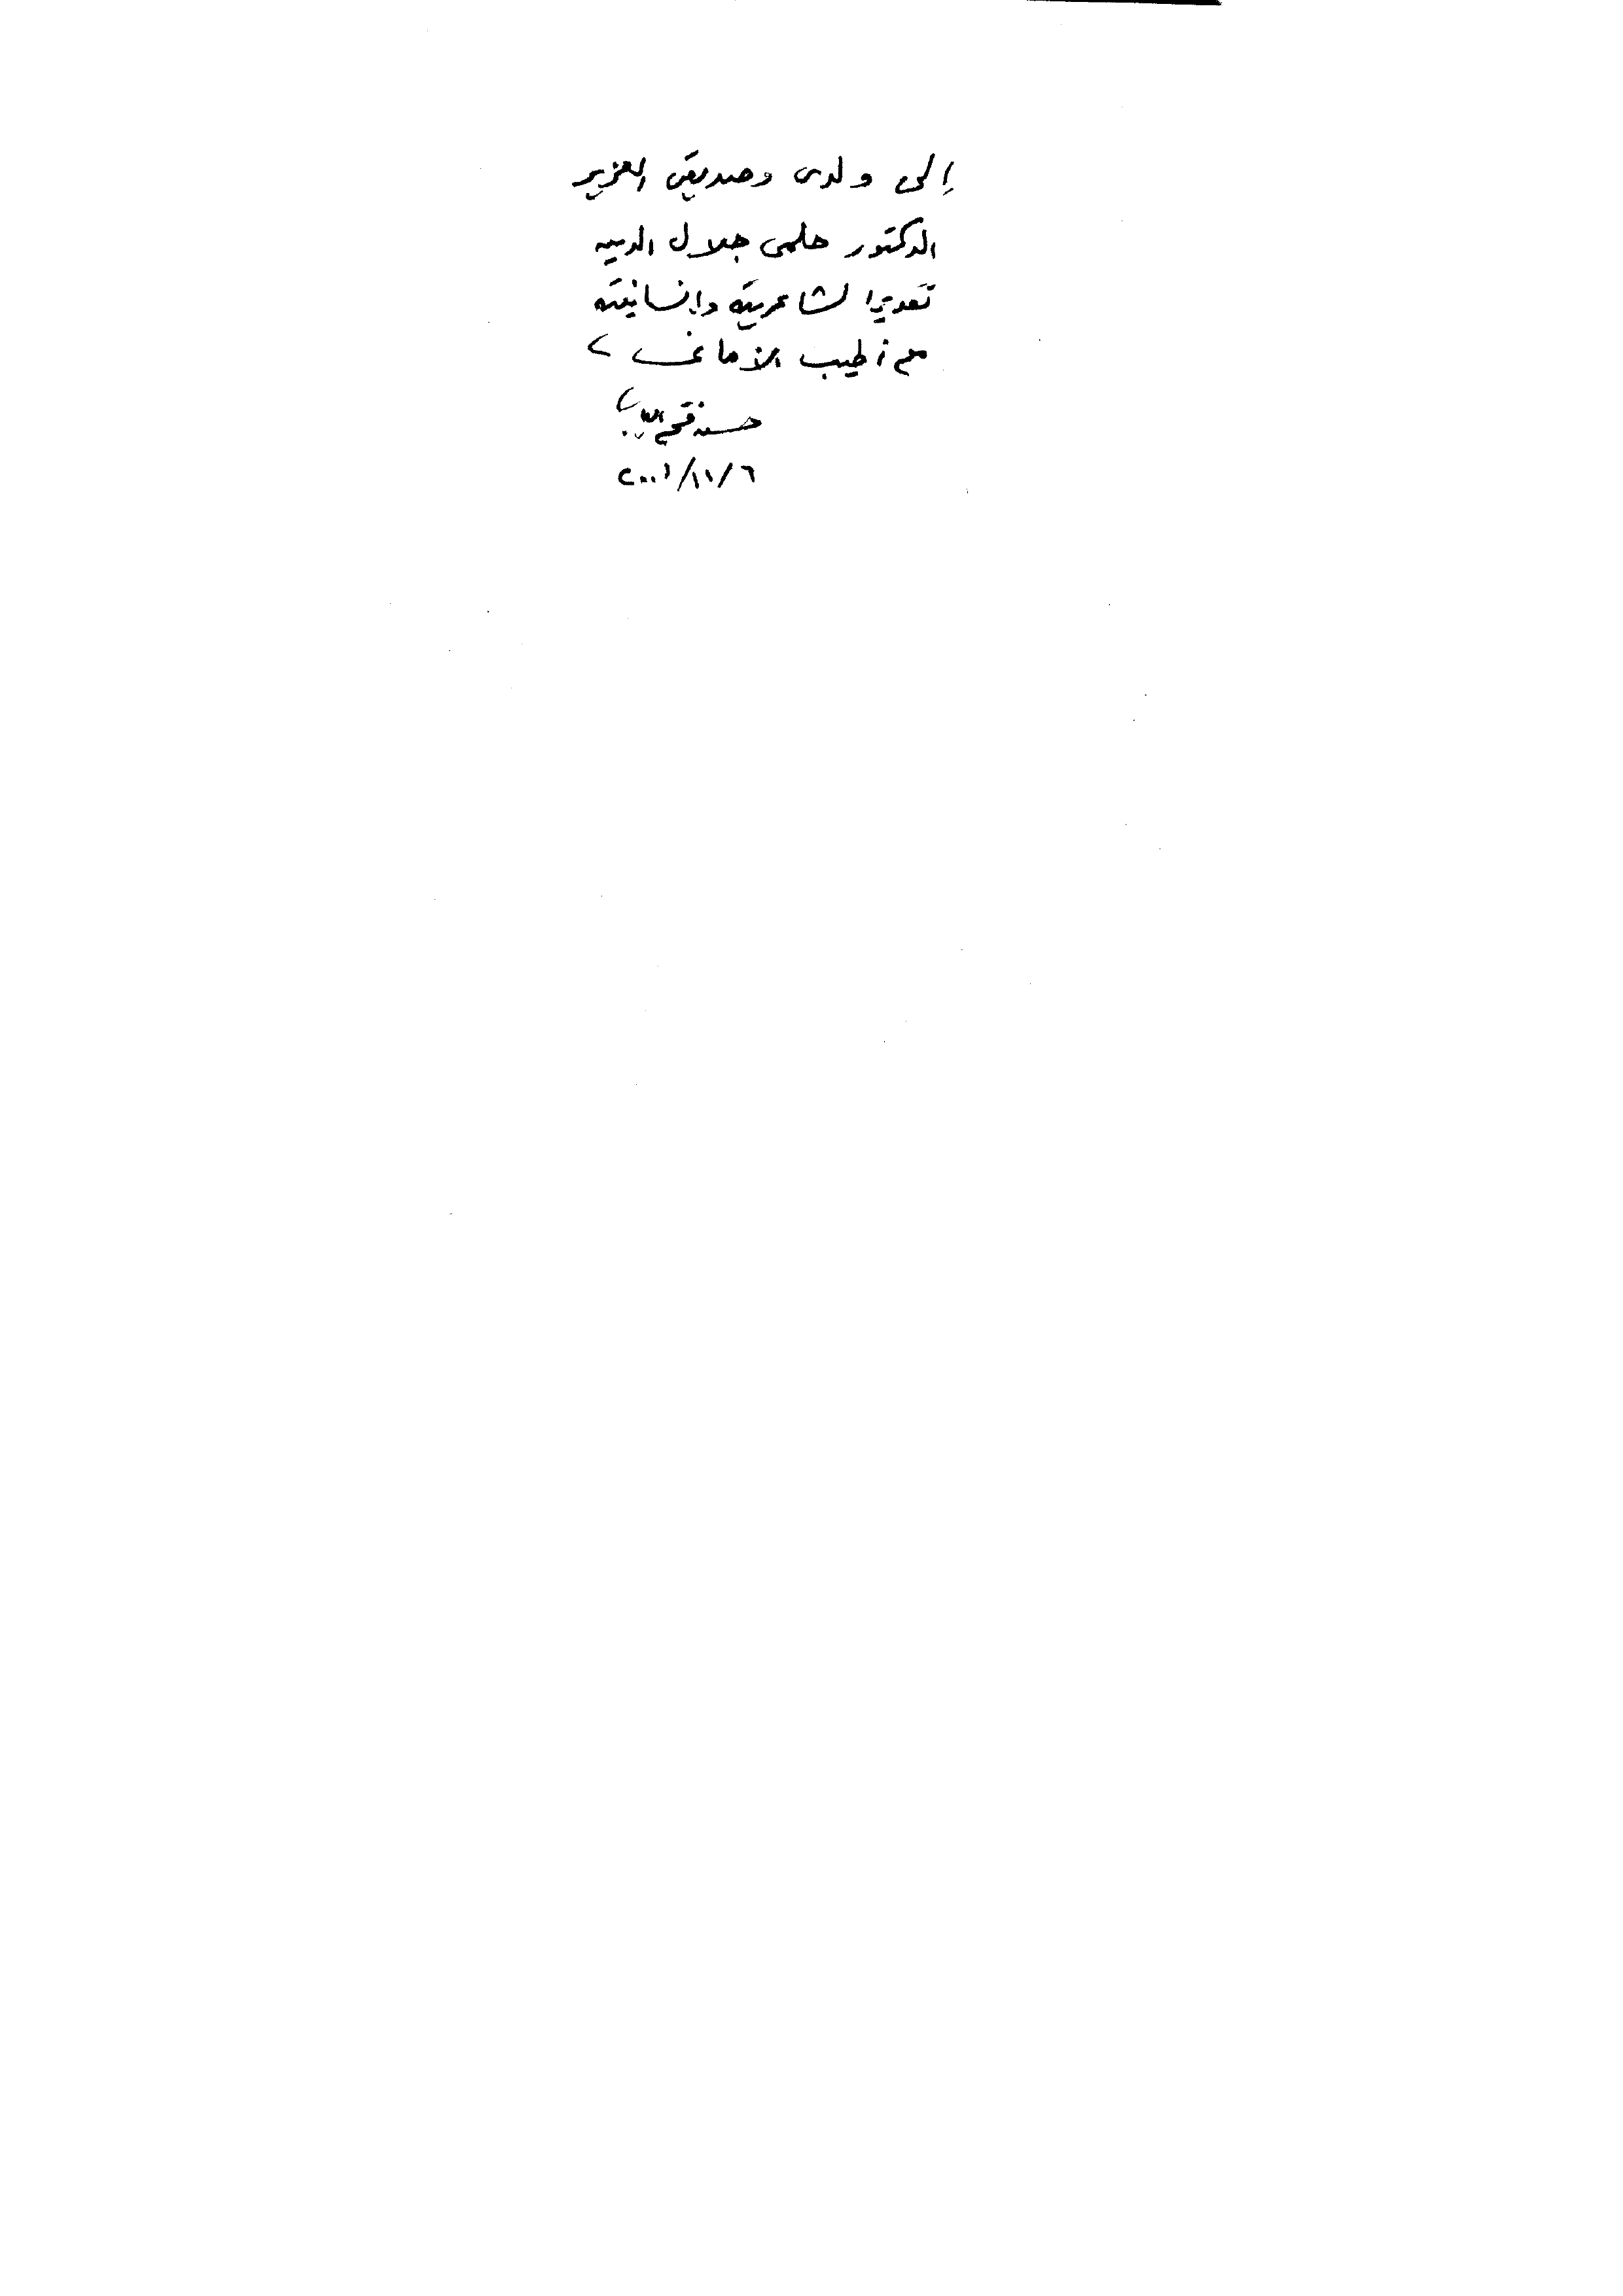 إلى ولدى وصديقى العزيز
الدكتور حلمى جلال الدين
تقديرا لشاعريته وإنسانيته
مع أطيب الأمانى
حسن فتح الباب
٢٠٠١/١١/٦